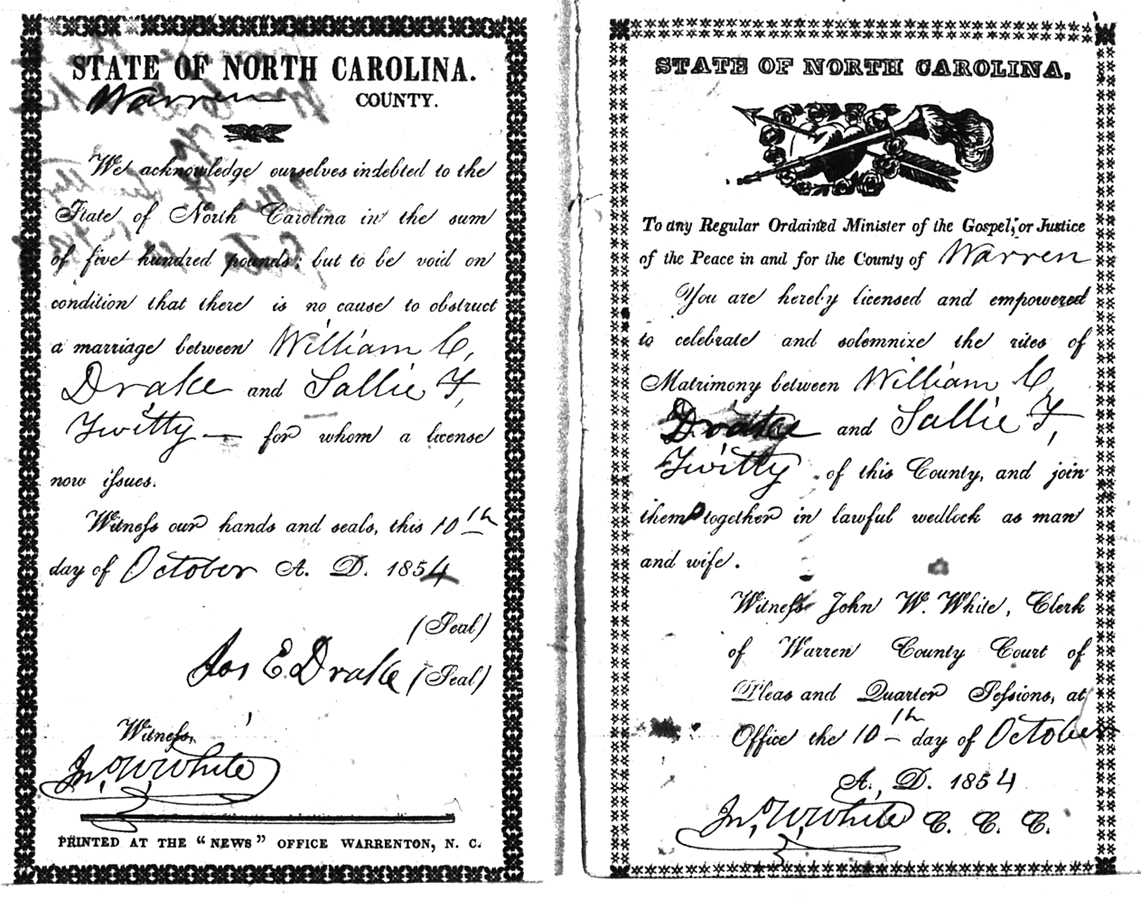 STATE OF NORTH CAROLINA.
Warren COUNTY.
We acknowledge ourselves indebted to the
State of North Carolina in the sum
of five hundred pounds: but to be void on
condition that there is no cause to obstruct
a marriage between William C,
Drake and Sallie F,
Twitty — for whom a license
now issues.
Witness our hands and seals, this 10th
day of October A. D. 1854
(Seal)
Jas E. Drake (Seal)
Witness,
Jno, W. White
PRINTED AT THE "NEWS" OFFICE WARRENTON, N. C.
STATE OF NORTH CAROLINA.
To any Regular Ordained Minister of the Gospel, or Justice
of the Peace in and for the County of Warren
You are hereby licensed and empowered
to celebrate and solemnize the rites of
Matrimony between William C,
Drake and Sallie F,
Twitty of this County, and join
them together in lawful wedlock as man
and wife.
Witness John W. White, Clerk
of Warren County Court of
Pleas and Quarter Sessions, at
Office the 10th day of October
A., D. 1854
Jno, W. White C. C. C.